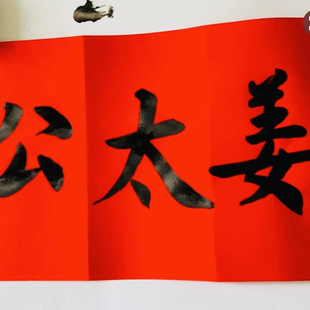 姜太公